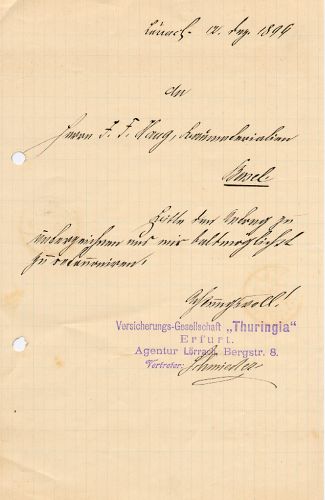 Lörrach. 12. Dez. 1899
An
Herrn J. F. Haug, Baumaterialien
Basel
Bitte den Antrag zu
unterzeichnen und mir baldmöglichst
zu retournieren.
Achtungsvoll!
Versicherungs-Gesellschaft „Thuringia"
Erfurt.
Agentur Lörrach, Bergstr. 8.
Vertreter: